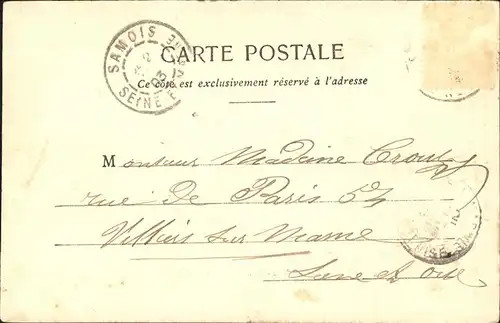 SAMOIS
SEINE ET MARNE
03
CARTE POSTALE
Ce côté est exclusivement réservé à l'adresse
Monsieur Madame
rue De Paris 54
Villiers sur Marne
Seine et Oise